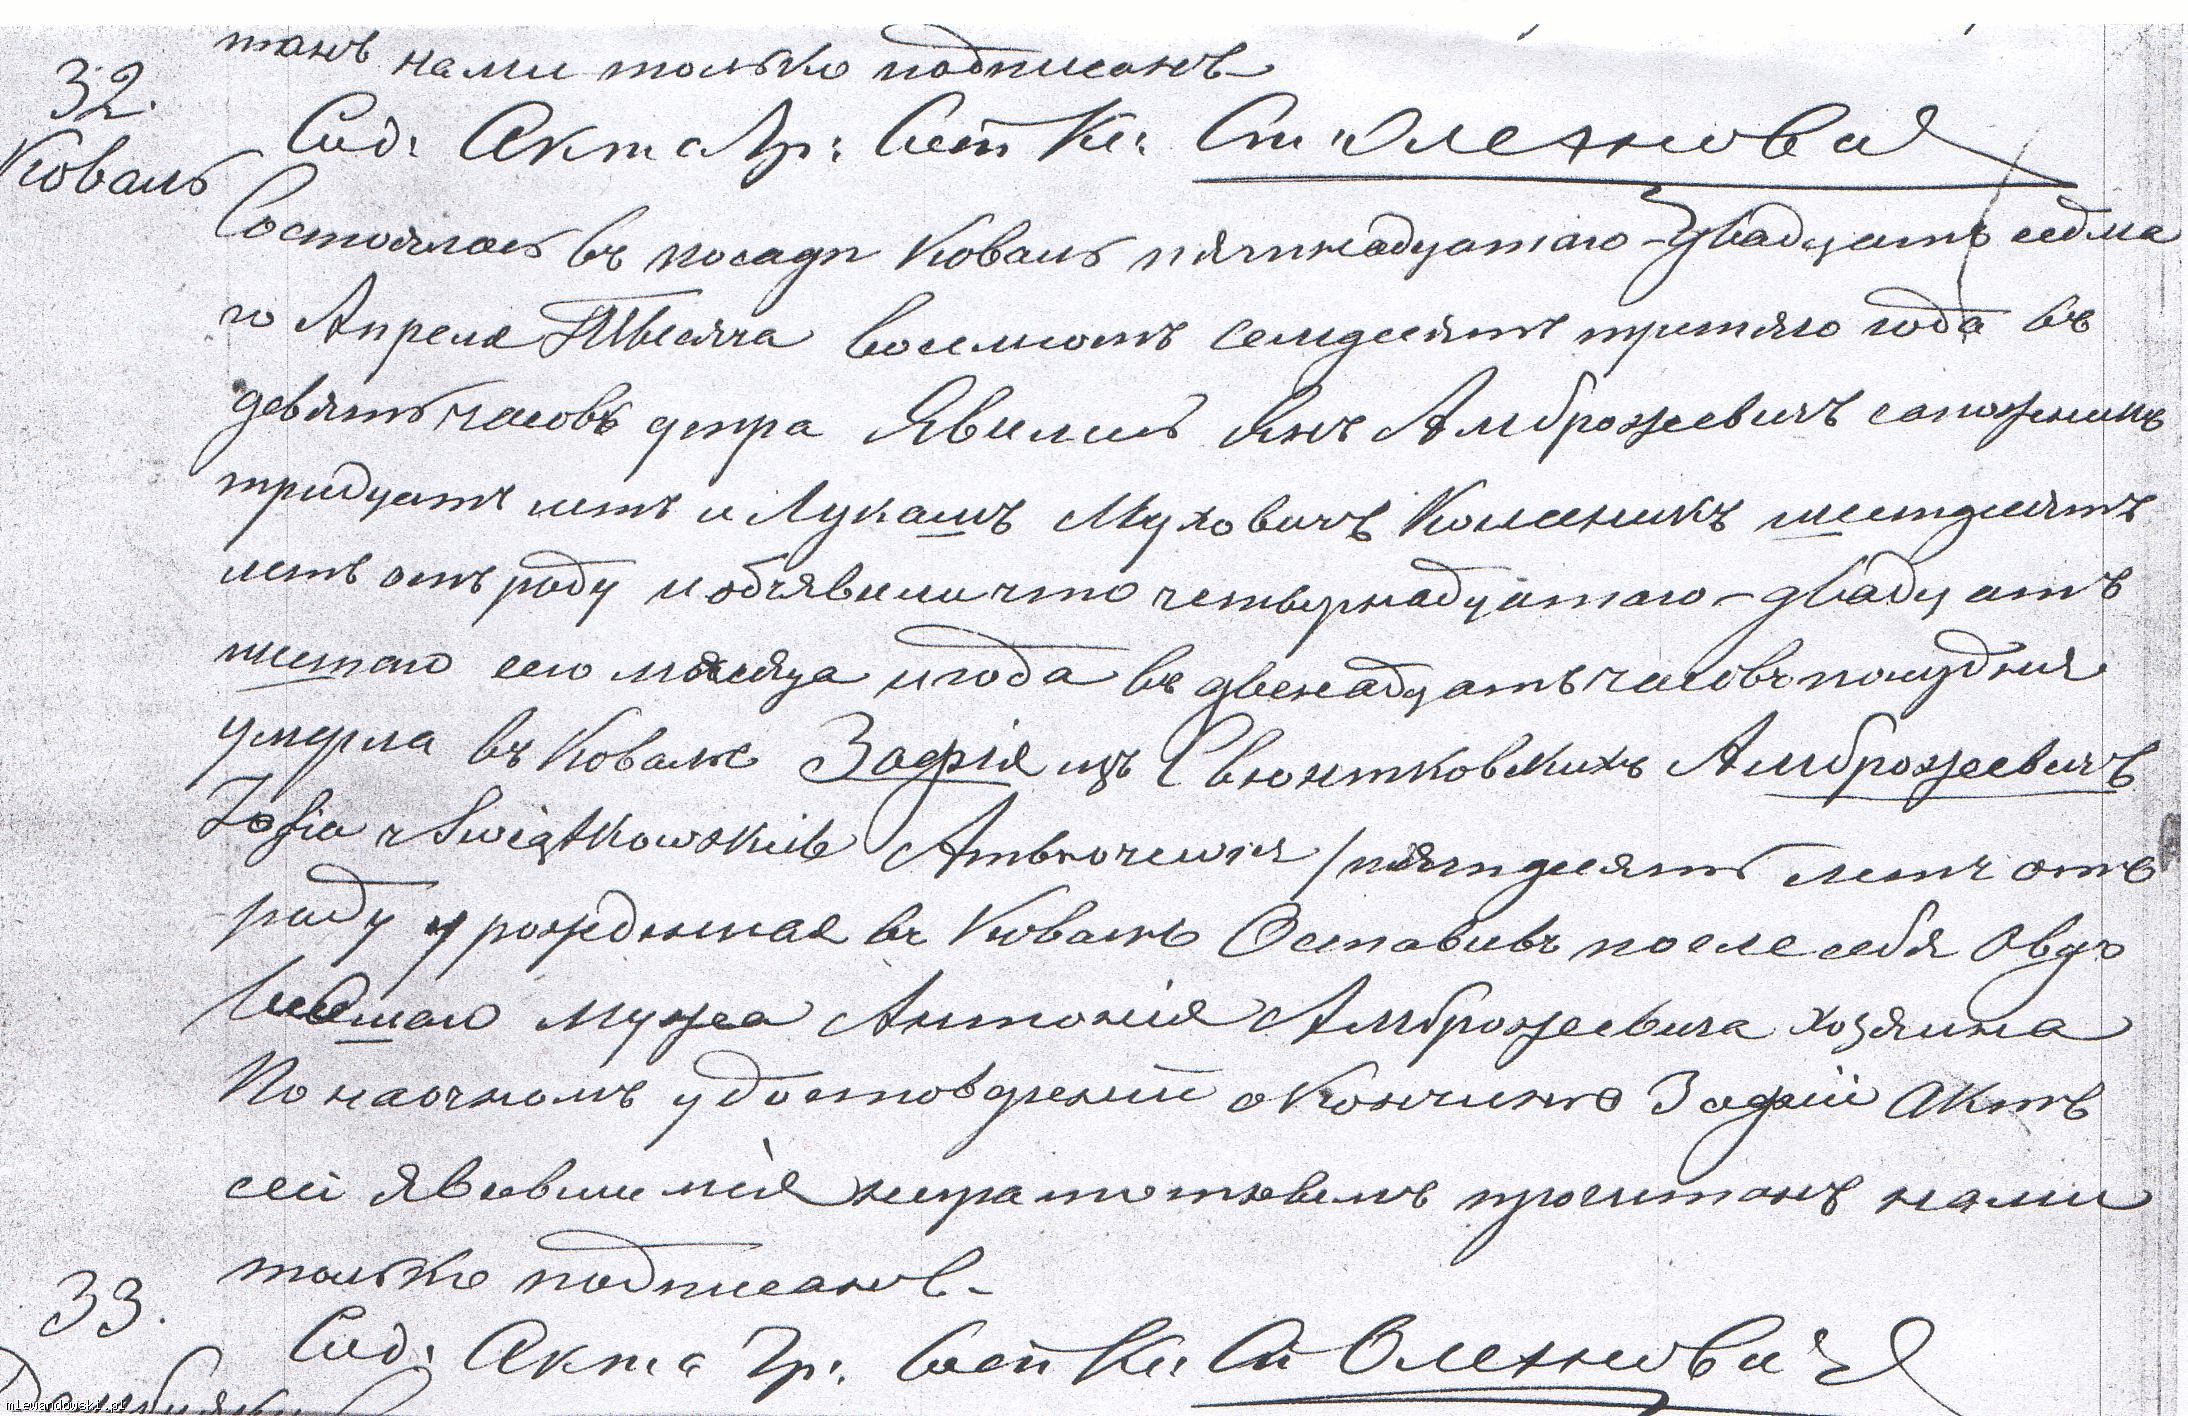 танъ нами только подписанъ
32.
Сод: Акта Гр: Сост Кс: Ст Оленновичъ
Коваль
Состоялось въ посадѣ Коваль пятнадцатаго – двадцать седма
го Апреля Тысяча восемсотъ семдесятъ третяго года въ
девять часовъ утра Явились Янъ Амброжевичъ сапожникъ
тридцать летъ и Лукашъ Муховичъ Колесникъ шестдесятъ
летъ отъ роду и объявили что четырнадцатаго – двадцать
шестаго сего месяца и года въ двенадцать часовъ полудня
умерла въ Ковале Зофія изъ Свіонтковскихъ Амброжевичъ
Zofia z Swiątkowskich Ambrozewicz / пятдесятъ летъ отъ
роду урожденная въ Ковалѣ Оставивъ после себя Овдо
вевшаго мужа Антонія Амброжевича хозяина
По наочномъ удостоверении о кончинѣ Зофіи Актъ
сей явившимся неграмотнымъ прочитанъ нами
только подписанъ –
33.
Сод: Акта Гр: Сост Кс: Ст Оленновичъ
mlewandowski.pl